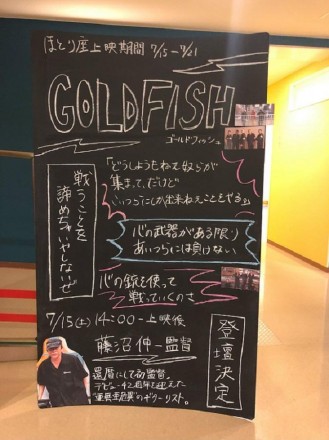 ほとり座上映期間 7/15-7/21
GOLDFISH
ゴールドフィッシュ
「どうしようもねえ奴らが
集まって、だけど
こいつらにしか出来ねえことをやる」
戦うことを
諦めちゃいやしないぜ
心の武器がある限り
あいつらには負けない
心の銃を使って
戦っていくのさ
7/15(土)14:00-上映後
藤沼伸一監督
登壇決定
還暦にして初監督。
デビュー42周年を迎えた
"亜無亜危異"のギターリスト。